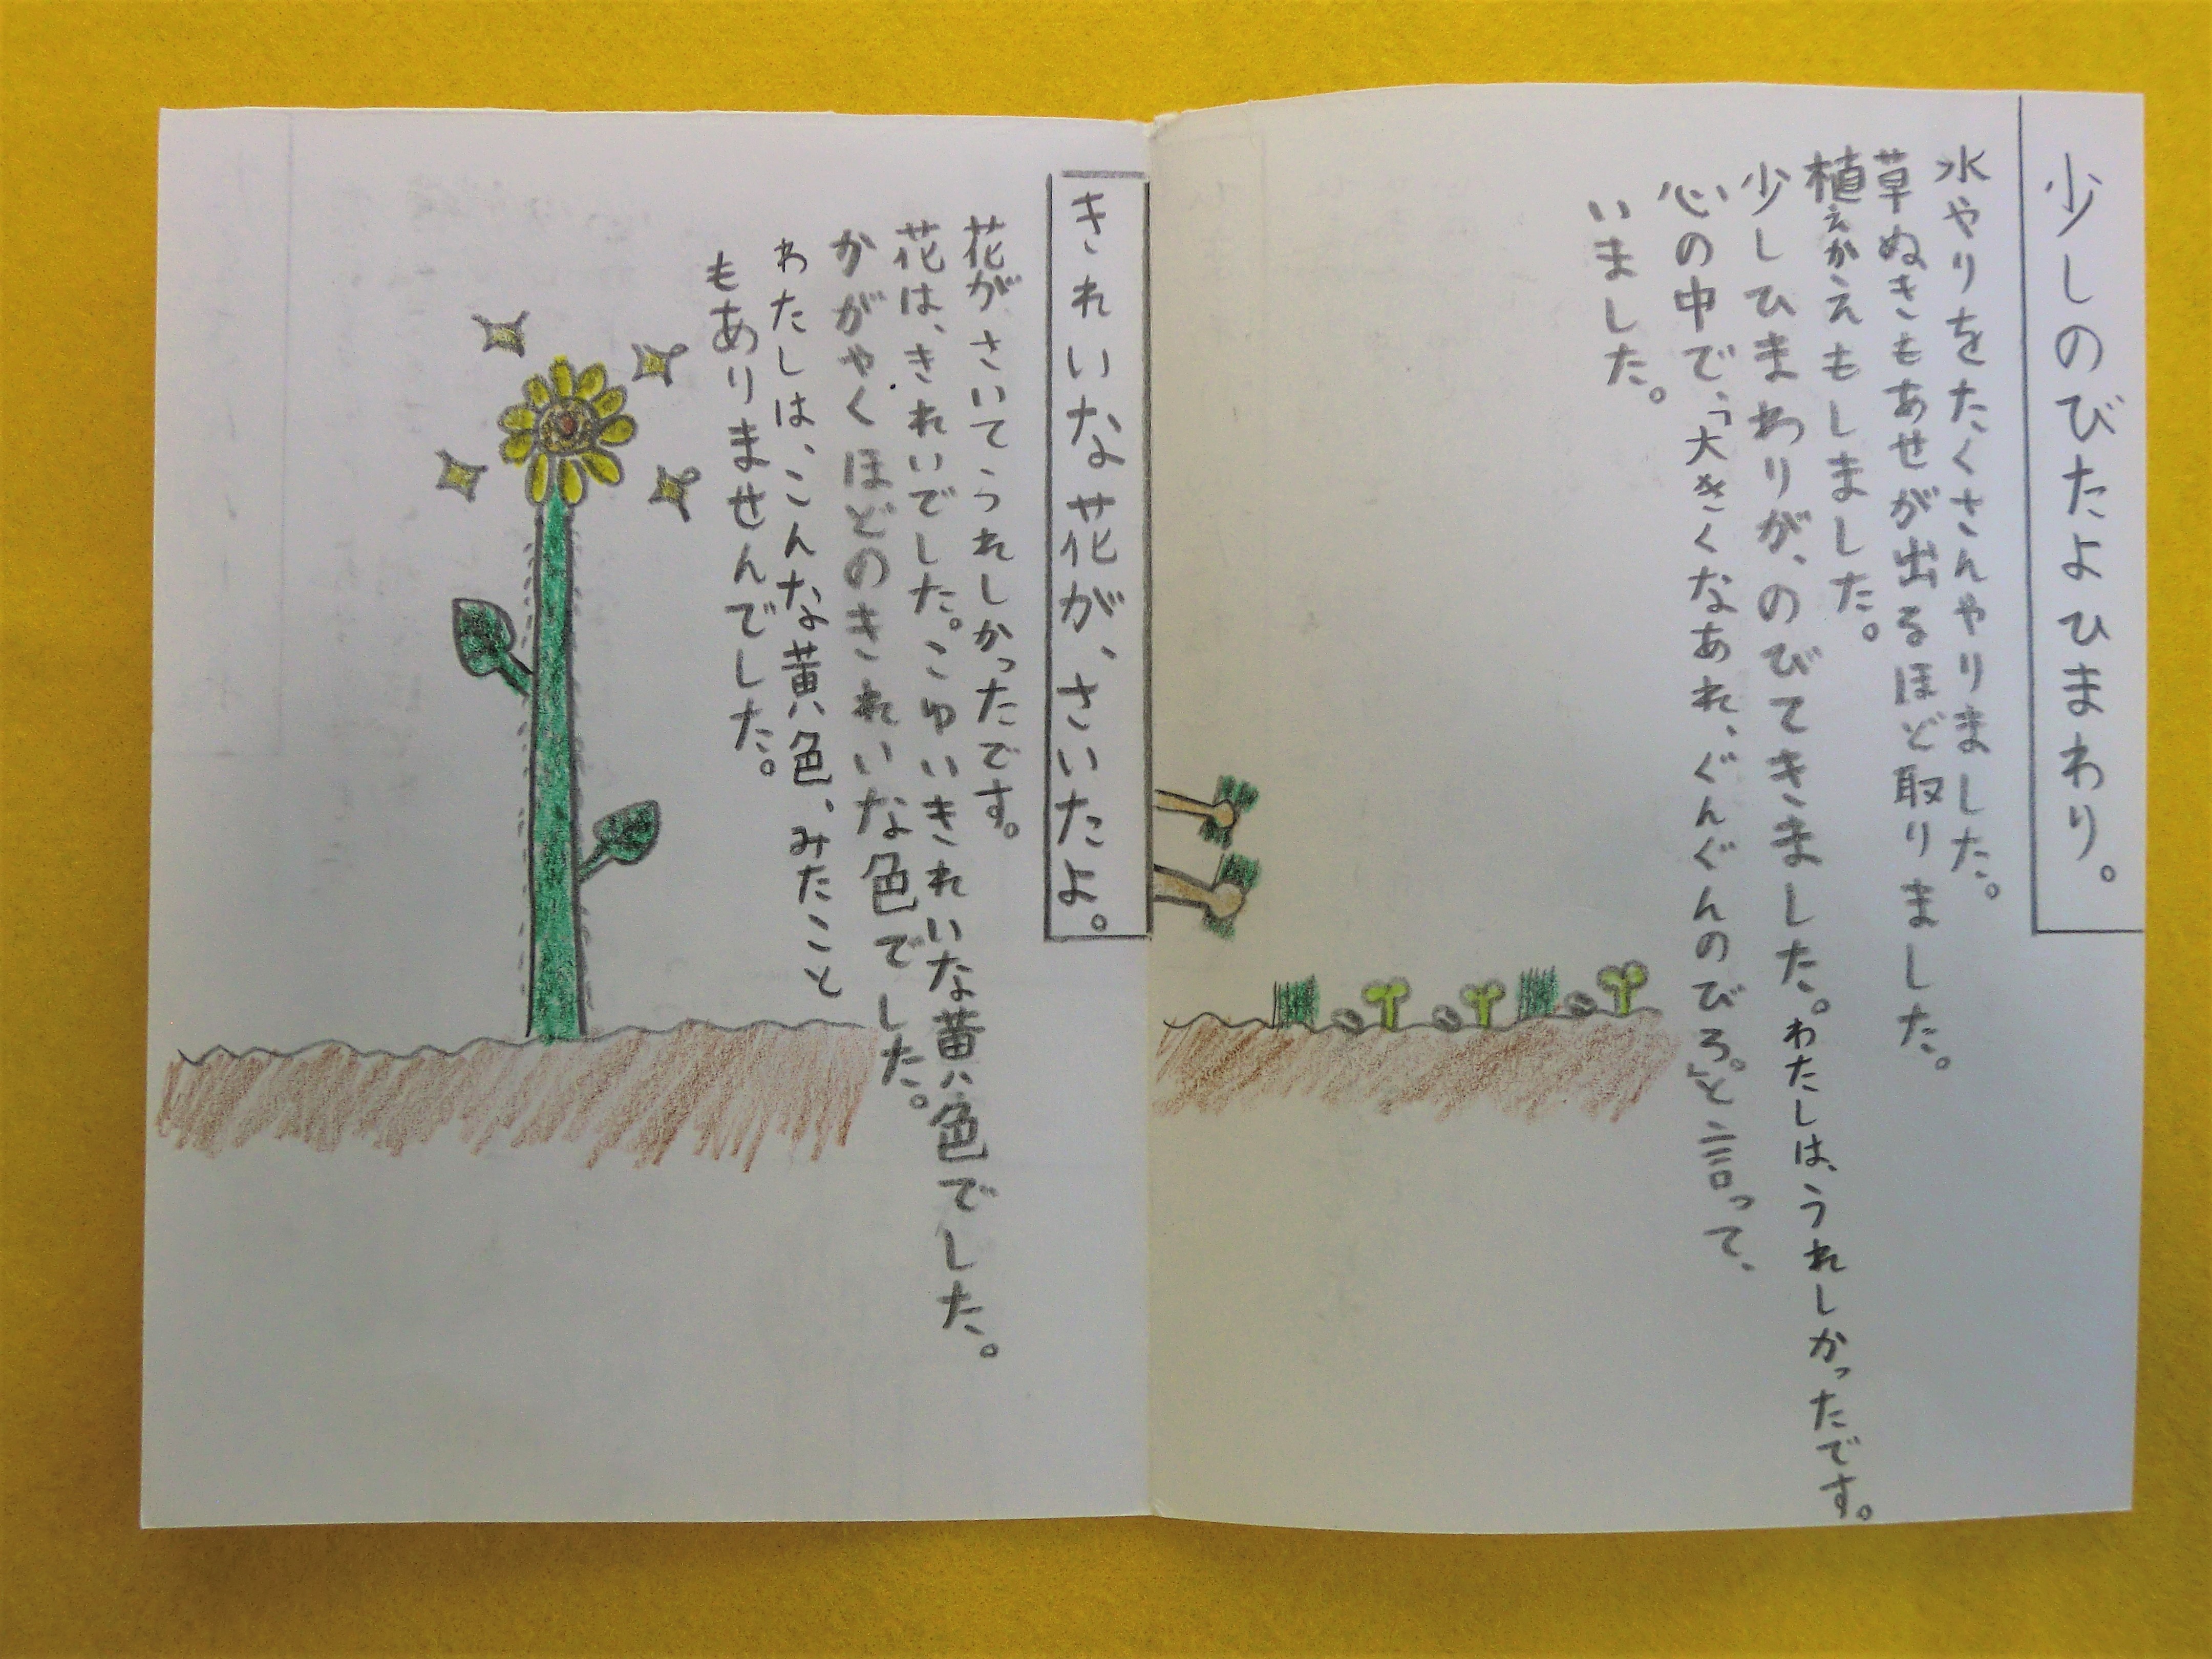 少しのびたよひまわり。
水やりをたくさんやりました。
草ぬきもあせが出るほど取りました。
植えかえもしました。
少しひまわりが、のびてきました。わたしは、うれしかったです。
心の中で、「大きくなあれ、ぐんぐんのびろ。」と言って、
いました。
きれいな花が、さいたよ。
花がさいてうれしかったです。
花は、きれいでした。こゆいきれいな黄色でした。
かがやくほどのきれいな色でした。
わたしは、こんな黄色、みたこと
もありませんでした。